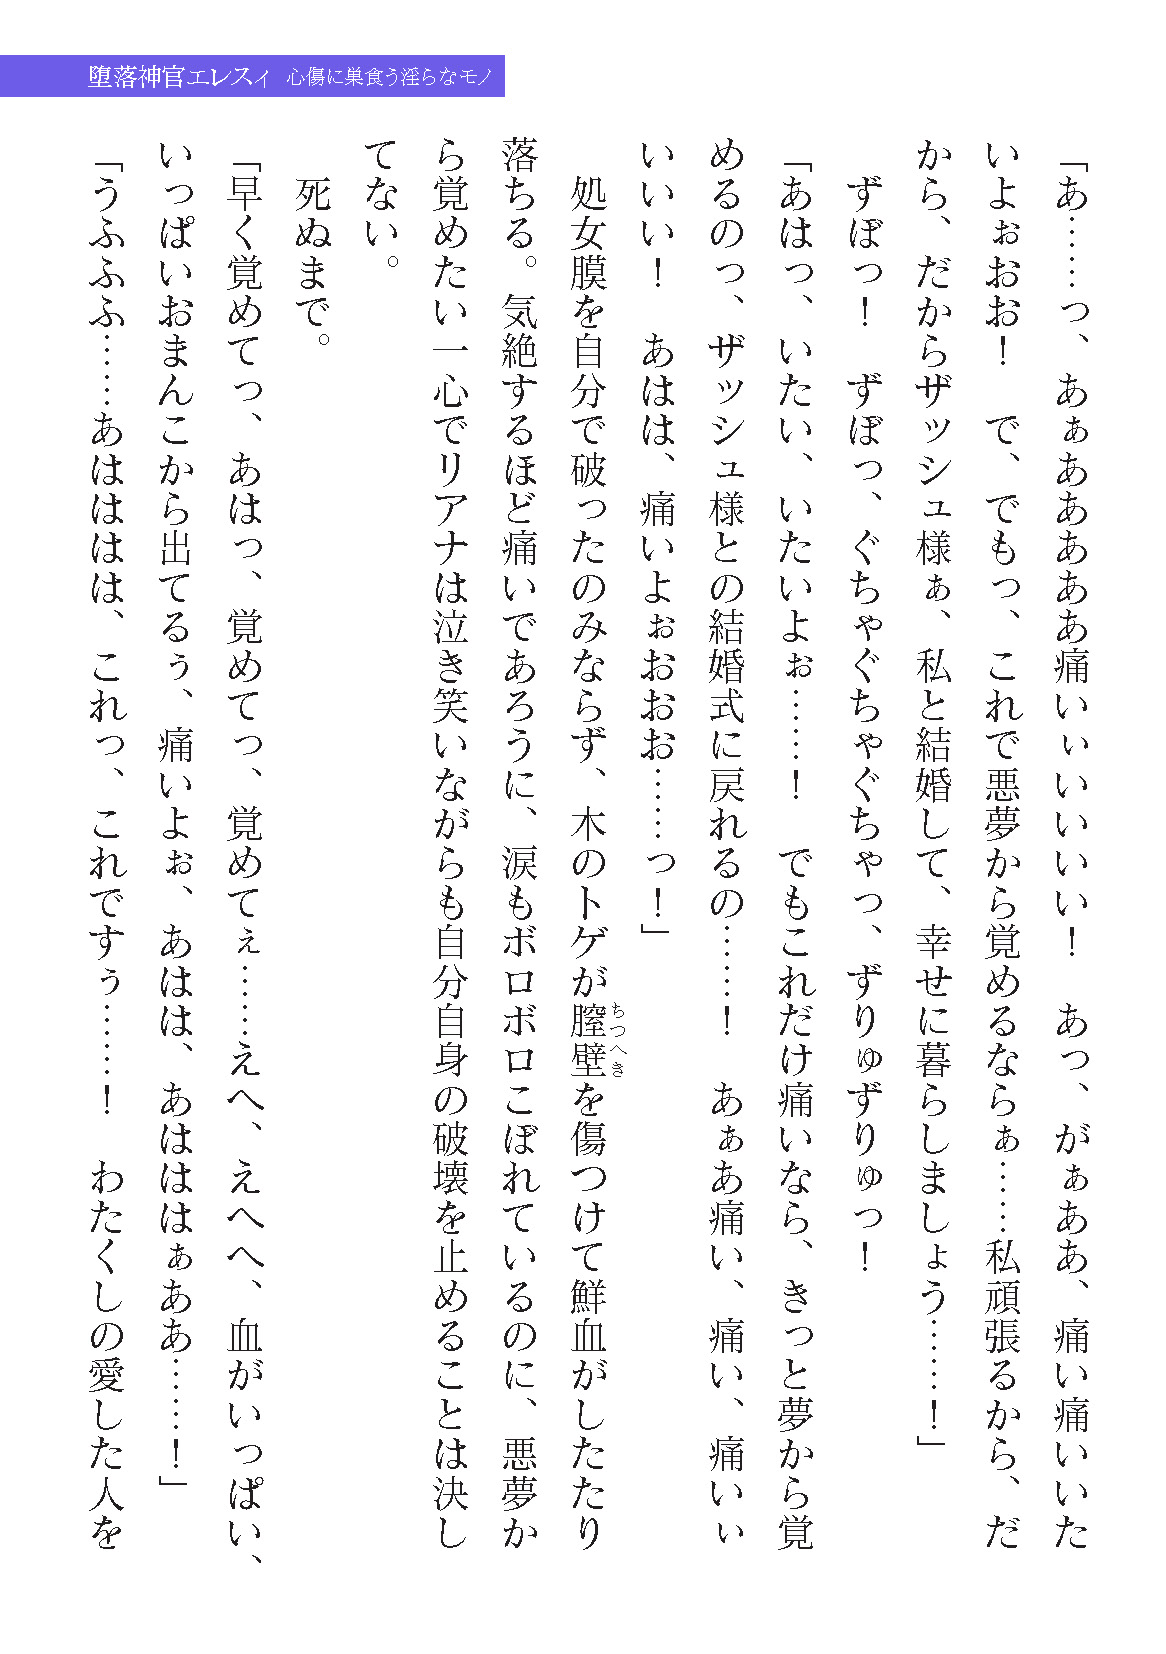 堕落神官エレスィ 心傷に巣食う淫らなモノ
「あ……っ、あぁあああああ痛いぃいいいい！　あっ、がぁああ、痛い痛いいた
いよぉおお！　で、でもっ、これで悪夢から覚めるならぁ……私頑張るから、だ
から、だからザッシュ様ぁ、私と結婚して、幸せに暮らしましょう……！」
　ずぼっ！　ずぼっ、ぐちゃぐちゃぐちゃっ、ずりゅずりゅっ！
「あはっ、いたい、いたいよぉ……！　でもこれだけ痛いなら、きっと夢から覚
めるのっ、ザッシュ様との結婚式に戻れるの……！　あぁあ痛い、痛い、痛いぃ
いいい！　あはは、痛いよぉおおお……っ！」
　処女膜を自分で破ったのみならず、木のトゲが膣壁を傷つけて鮮血がしたたり
ちつへき
落ちる。気絶するほど痛いであろうに、涙もボロボロこぼれているのに、悪夢か
ら覚めたい一心でリアナは泣き笑いながらも自分自身の破壊を止めることは決し
てない。
　死ぬまで。
「早く覚めてっ、あはっ、覚めてっ、覚めてぇ……えへ、えへへ、血がいっぱい、
いっぱいおまんこから出てるぅ、痛いよぉ、あはは、あはははぁああ……！」
「うふふふ……あはははは、これっ、これですぅ……！　わたくしの愛した人を